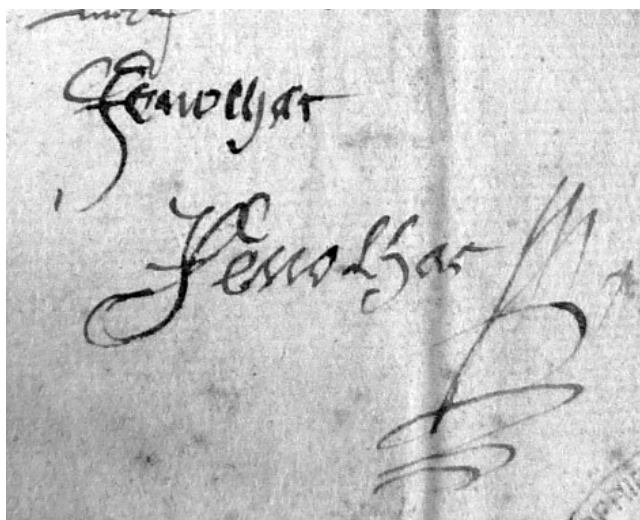 Fenolhar
Fenolhar